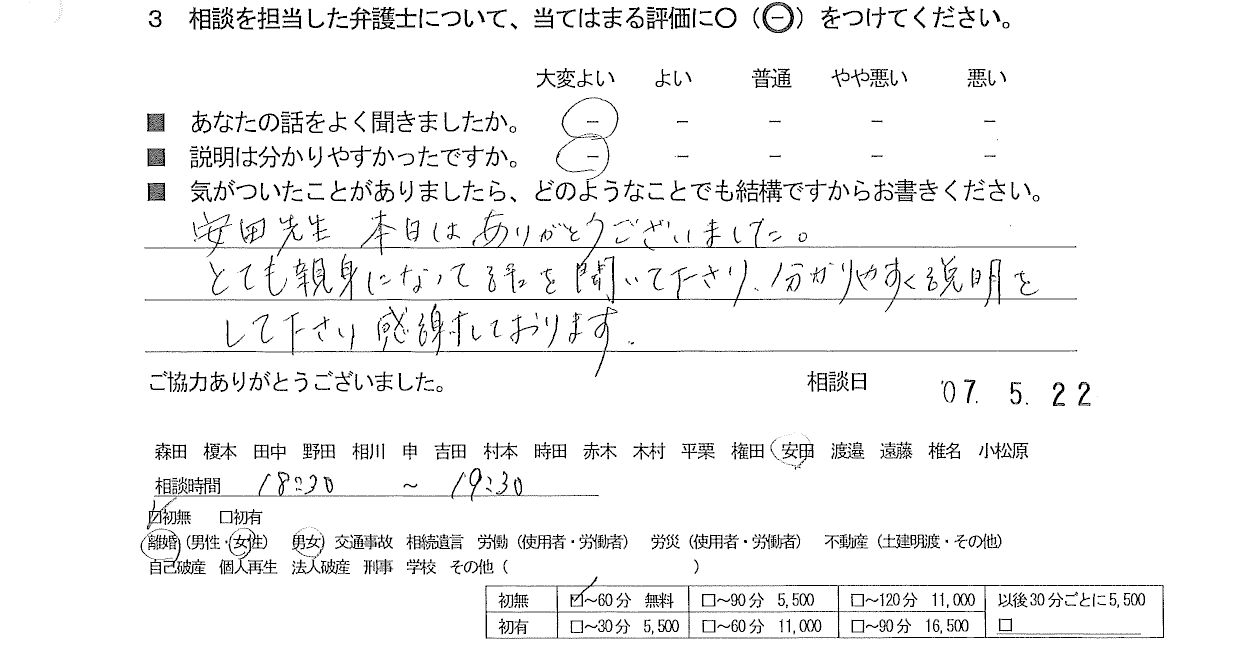 3 相談を担当した弁護士について、当てはまる評価に○（㊀）をつけてください。
大変よい よい 普通 やや悪い 悪い
■ あなたの話をよく聞きましたか。 － － － － －
■ 説明は分かりやすかったですか。 － － － － －
■ 気がついたことがありましたら、どのようなことでも結構ですからお書きください。
安田先生 本日はありがとうございました。
とても親身になって話を聞いて下さり、分かりやすく説明を
して下さり感謝しております。
ご協力ありがとうございました。 相談日 '07. 5. 22
森田 榎本 田中 野田 相川 申 吉田 村本 時田 赤木 木村 平栗 権田 安田 渡邉 遠藤 椎名 小松原
相談時間 18:30 ～ 19:30
☑初無 □初有
離婚（男性・女性） 男女 交通事故 相続遺言 労働（使用者・労働者） 労災（使用者・労働者） 不動産（土建明渡・その他）
自己破産 個人再生 法人破産 刑事 学校 その他（ ）
初無 ☑～60分 無料 □～90分 5,500 □～120分 11,000 以後30分ごとに5,500
初有 □～30分 5,500 □～60分 11,000 □～90分 16,500 □